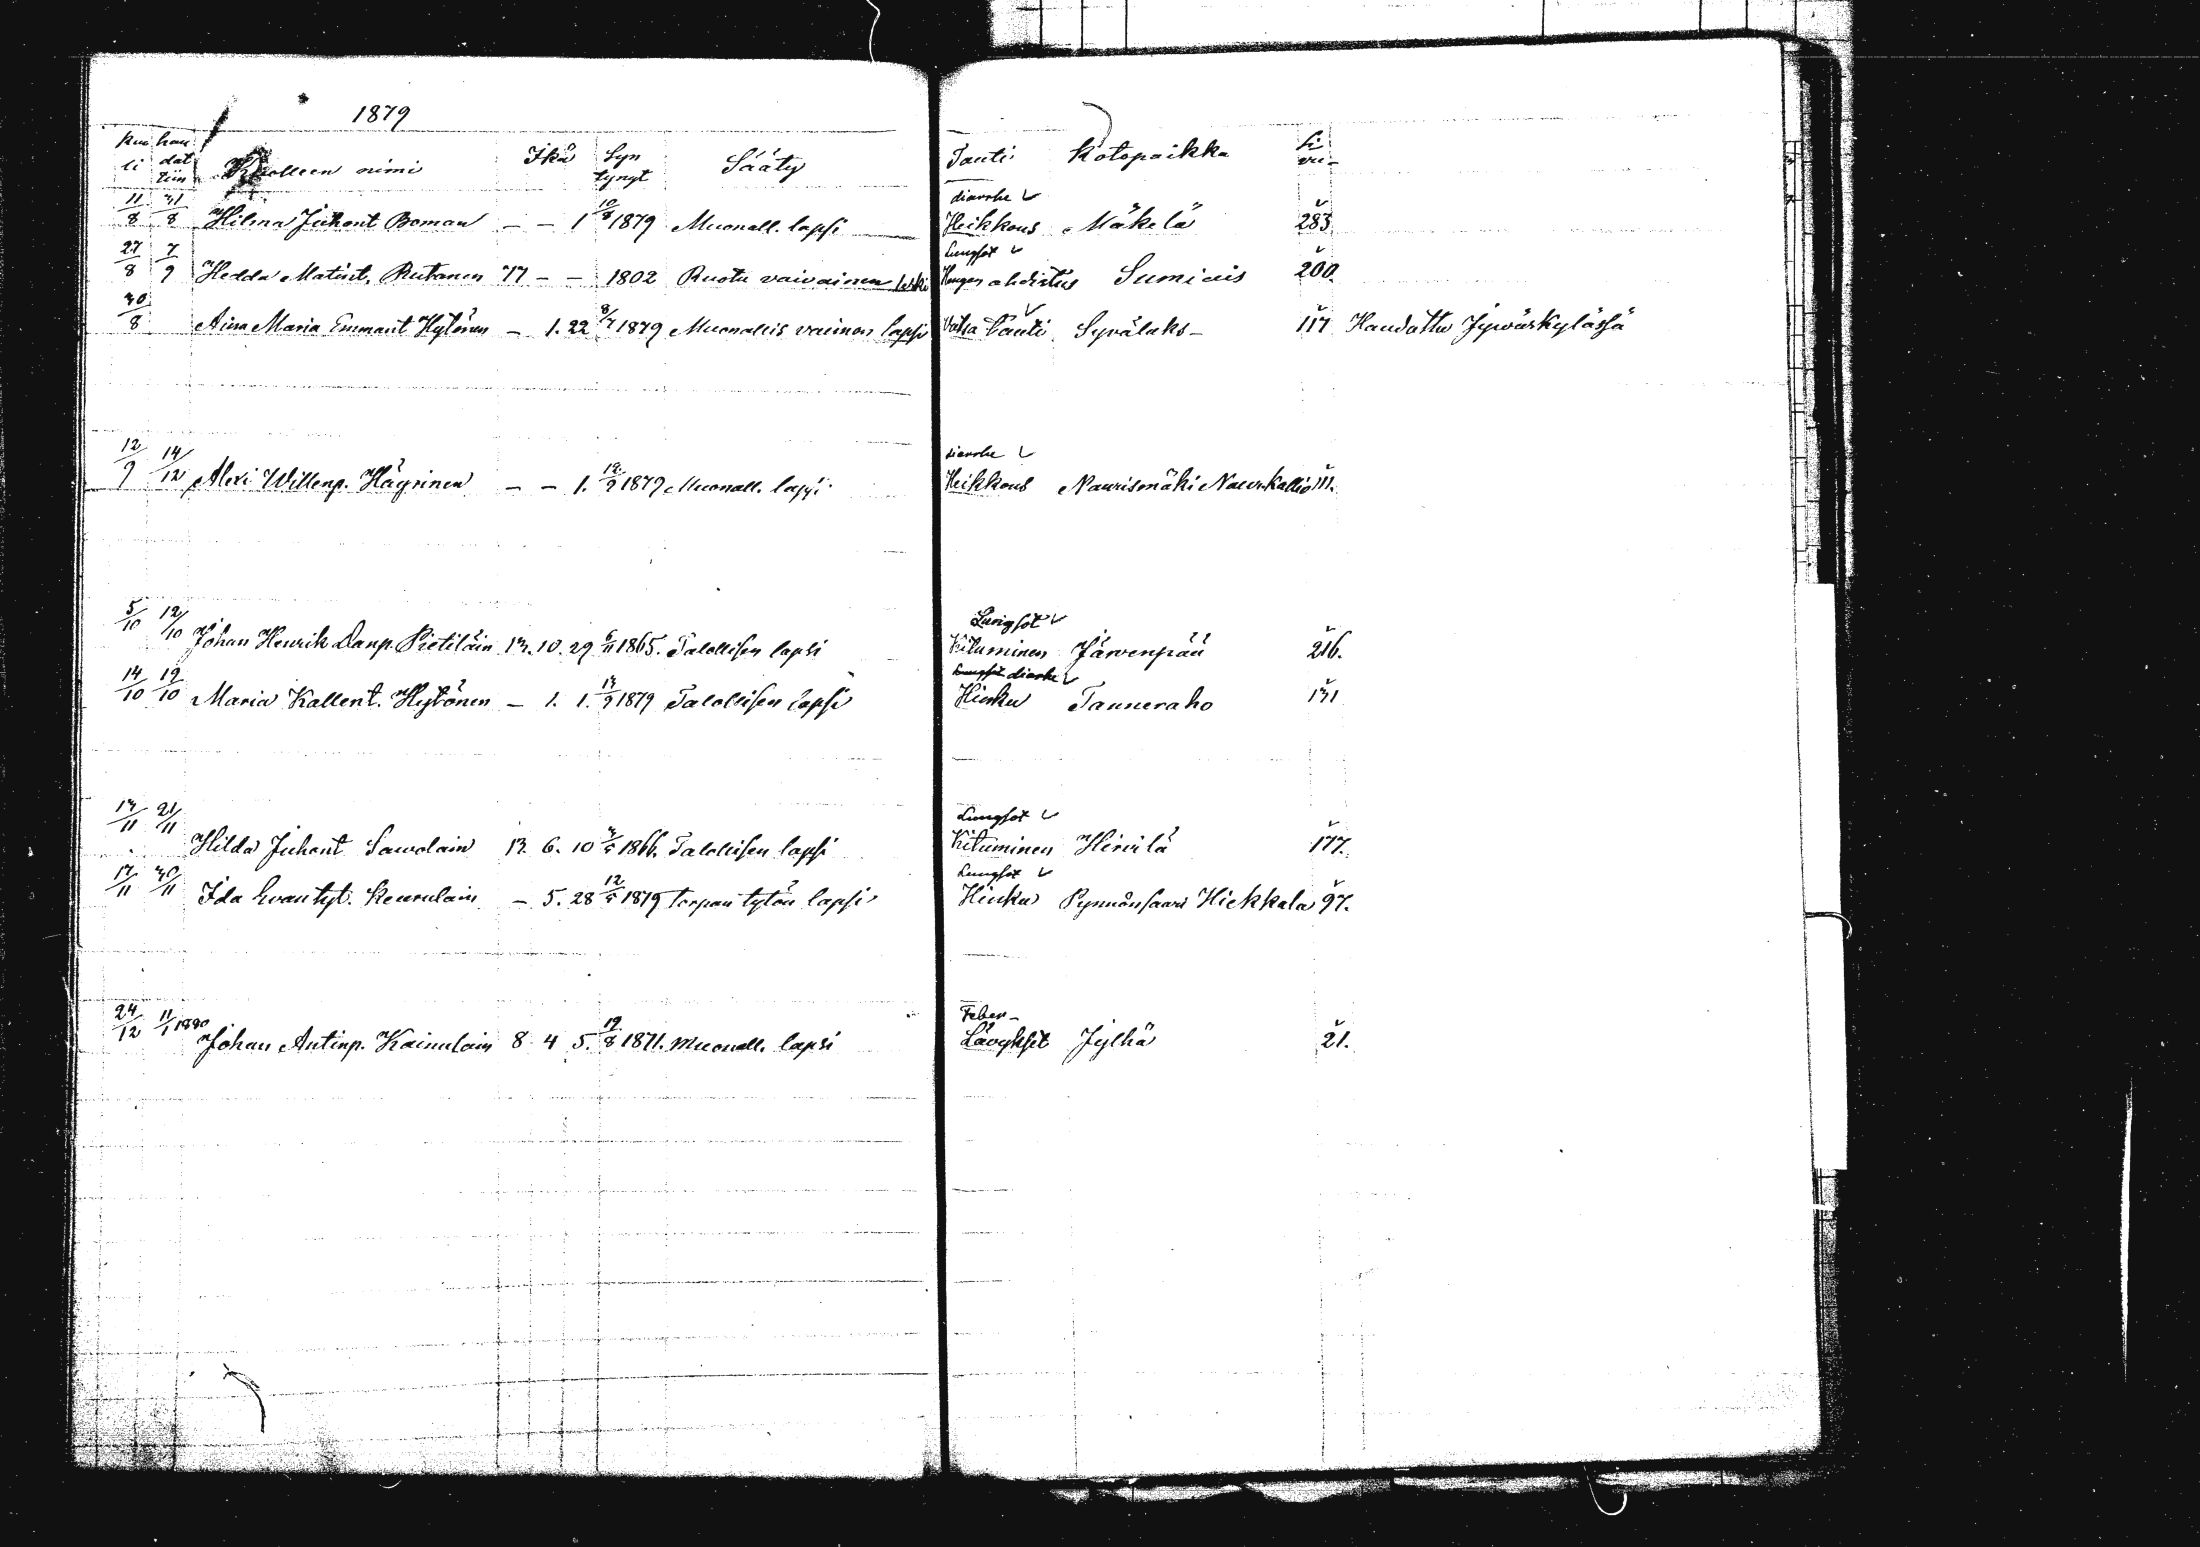 1879
Kuoli haudattiin Kuolleen nimi Ikä Syntynyt Sääty Tauti Kotopaikka Sivu-
diarrhe
11/8 31/8 Hilma Juhont Boman — — 1 10/8 1879 Muonall. lapsi Heikkous Mäkelä 283
Lungsot
27/8 7/9 Hedda Matint. Rutanen 77 — — 1802 Ruotu vaivainen leski Hengen ahdistus Sumiais 200.
30/8 Aina Maria Emmant Hytönen — 1. 22 8/7 1879 Muonallis vaimon lapsi Vatsa tauti Syvälaks- 117 Haudattu Jywäskylässä
diarrhe
12/9 14/12 Alexi Willenp. Häyrinen — — 1. 1879 Muonall. lapsi Heikkous Naurismäki Naur.kallio 111.
Lungsot
5/10 12/10 Johan Henrik Danp. Pietiläin 13. 10. 29 6/11 1865. Talollisen lapsi Kituminen Järvenpää 216.
Lungsot diarhe
14/10 19/10 Maria Kallent. Hytönen — 1. 1. 13/9 1879 Talollisen lapsi Hinku Tanneraho 131
Lungsot
13/11 21/11 Hilda Juhont Sawolain 13. 6. 10 3/5 1866. Talollisen lapsi Kituminen Hirvilä 177.
Lungsot
30/11 Ida Evantyt. Keurulain — 5. 28 12/5 1879 Torpan tytön lapsi Hinku Pynnönsaari Hiekkala 97.
Feber-
24/12 11/1 1880 Johan Antinp. Kainulain 8 4 5. 19/8 1871. Muonall. lapsi Lävykset Jylhä 21.